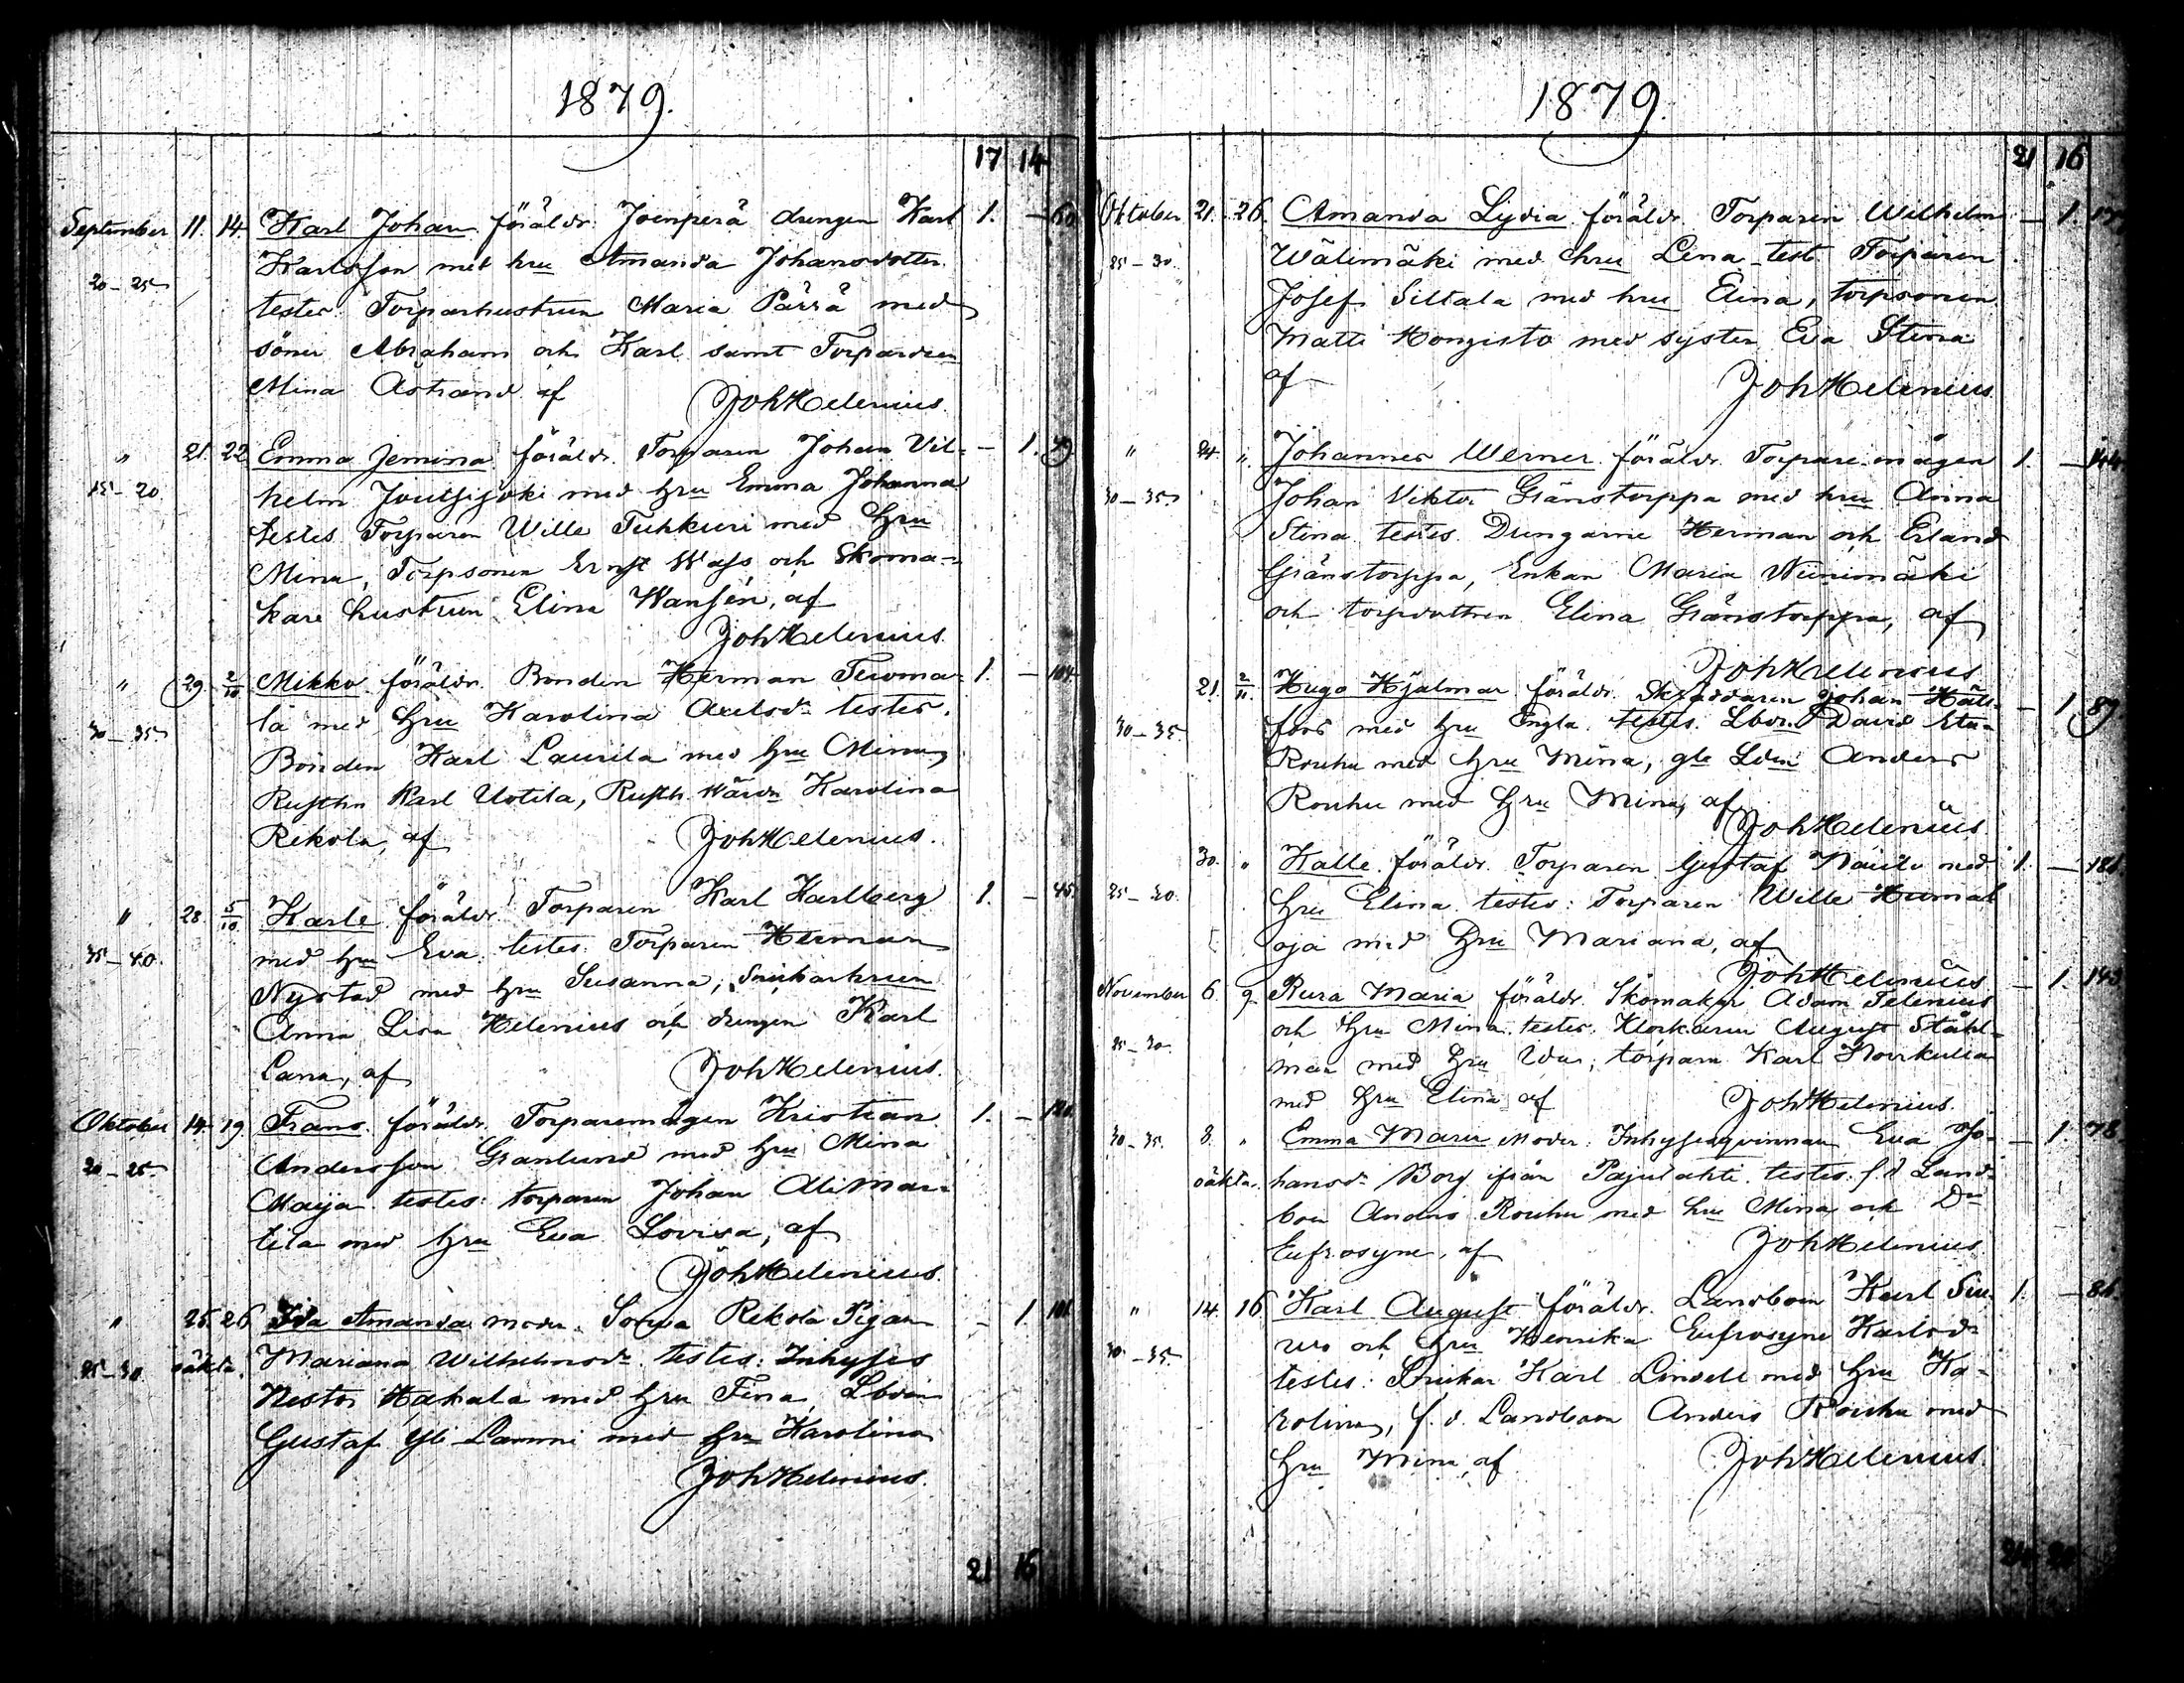 1879.
17 14
September 11. 14. Karl Johan föräldr. Joenperä drengen Karl 1. — 60
20–25 Karlsson med hru Amanda Johansdotter.
testes: Torparhustrun Maria Pärrä med
söner Abraham och Karl samt Torpardren
Mina Åstrand af JohHelenius.
" 21. 22 Emma Jemina föräldr. Torparen Johan Vil- — 1. 49
15–20. helm med hru Emma Johanna
testes Torparen Wille Tuhkuri med hru
Mina, Torpsonen Ernst Wass och Skoma-
kare hustrun Elina Wansén, af
JohHelenius.
" 29. 2/10 Mikko föräldr. Bonden Herman Teroma- 1. — 104
30–35 la med hru Karolina Axelsdr testes.
Bonden Karl Laurila med hru Mina,
Rusth. Karl Uotila, Rusth. Karolina
Rekola, af JohHelenius.
" 28. 5/10 Karle föräldr. Torparen Karl Karlberg 1. — 45
35–40. med hru Eva. testes: Torparen Herman
Nystad med hru Susanna, Snickarhrun
Anna Lisa Helenius och drengen Karl
Lana, af JohHelenius.
Oktober 14. 19. Frans. föräldr. Torparemågen Kristian 1. — 120.
20–25 Andersson Granlund med hru Mina
Maija. testes: torparen Johan Alimar-
tila med hru Eva Lovisa, af
JohHelenius.
" 25. 26 Ida Amanda moder. Sorwa Rekola Pigan — 1 101
25–30 oäkta. Mariana Wilhelmsdr. testes: Inhyses
Nestor Hakala med hru Fina, Lbdn
Gustaf Yli Lammi med hru Karolina
JohHelenius.
21 16
1879.
21 16
Oktober 21. 26. Amanda Lydia föräldr. Torparen Wilhelm — 1.
25–30. Wälimäki med hru Lena. test. Torparen
Josef Siltala med hru Elina, torpsonen
Matti Hongisto med syster Eva Stina
af JohHelenius.
" 24. ". Johannes Werner. föräldr. Torpare mågen 1. — 144
30–35 Johan Viktor Gränstorppa med hru Anna
Stina. testes. Drengarne Herman och Erland
Gränstorppa, Enkan Maria Niinimäki
och torpdottren Elina Gränstorppa, af
JohHelenius
21. 2/11. Hugo Hjalmar föräldr. Skräddaren Johan Häls- — 1 89
30–35. fors med hru Engla. testes. Lbdr. David Eta-
Rouhu med hru Mina, gle Lden Anders
Rouhu med hru Mina, af
JohHelenius
30. " Kalle föräldr. Torparen Gustaf med 1. —
25–30. hru Elina. testes: Torparen Wille Humal
oja med hru Mariana, af
JohHelenius
November 6. 9. Rura Maria föräldr. Skomakar Adam Selenius — 1. 143
25–30. och hru Mina. testes. Klockaren August Ståhl-
man med hru Ida, torparn Karl
med hru Elina af JohHelenius.
30–35. 8. " Emma Maria Moder: Inhysesqvinnan Eva Jo- — 1. 78
oäkta. hansdr. Borg ifrån Pajulahti. testes: f.d. Land-
boen Anders Rouhu med hru Mina och Dr
Eufrosyne, af JohHelenius
" 14. 16 Karl August föräldr. Landboen Karl Siu- 1. — 86.
30–35. ro och hru Henrika Eufrosyne Karlsdr
testes: Snickar Karl Lindell med hru Ka-
rolina, f. d. Landboen Anders Rouhu med
hru Mina, af JohHelenius.